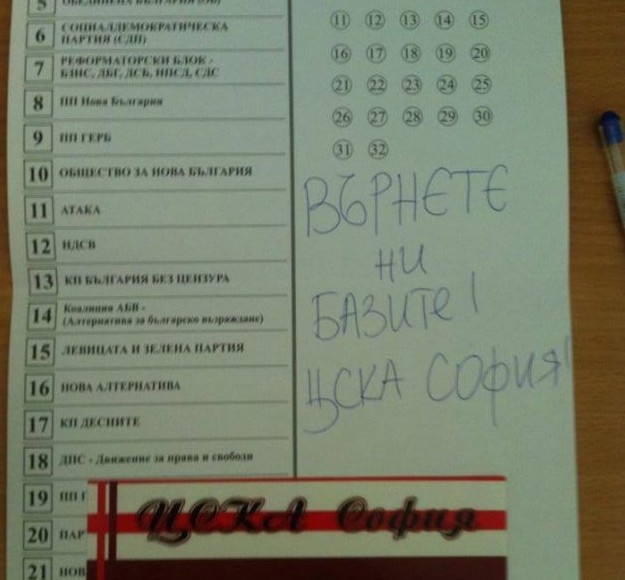 5 ОБЕДИНЕНА БЪЛГАРИЯ (ОБ)
6 СОЦИАЛДЕМОКРАТИЧЕСКА
ПАРТИЯ (СДП)
7 РЕФОРМАТОРСКИ БЛОК -
БЗНС, ДБГ, ДСБ, НПСД, СДС
8 ПП Нова България
9 ПП ГЕРБ
10 ОБЩЕСТВО ЗА НОВА БЪЛГАРИЯ
11 АТАКА
12 НДСВ
13 КП БЪЛГАРИЯ БЕЗ ЦЕНЗУРА
14 Коалиция АБВ -
(Алтернатива за българско възраждане)
15 ЛЕВИЦАТА И ЗЕЛЕНА ПАРТИЯ
16 НОВА АЛТЕРНАТИВА
17 КП ДЕСНИТЕ
18 ДПС - Движение за права и свободи
19 ПП Г
20 ПАР
21 НОВ
11 12 13 14 15
16 17 18 19 20
21 22 23 24 25
26 27 28 29 30
31 32
ВЪРНЕТЕ
НИ
БАЗИТЕ!
ЦСКА СОФИЯ!
ЦСКА София